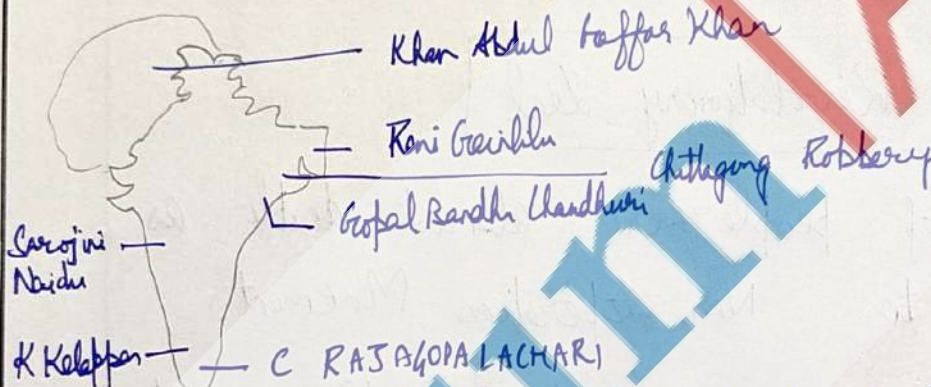 Khan Abdul Gaffar Khan
Rani Gainhlu
Chittagong Robbery
Gopal Bandhu Chandhuri
Sarojini
Naidu
K Kelappan
C RAJAGOPALACHARI